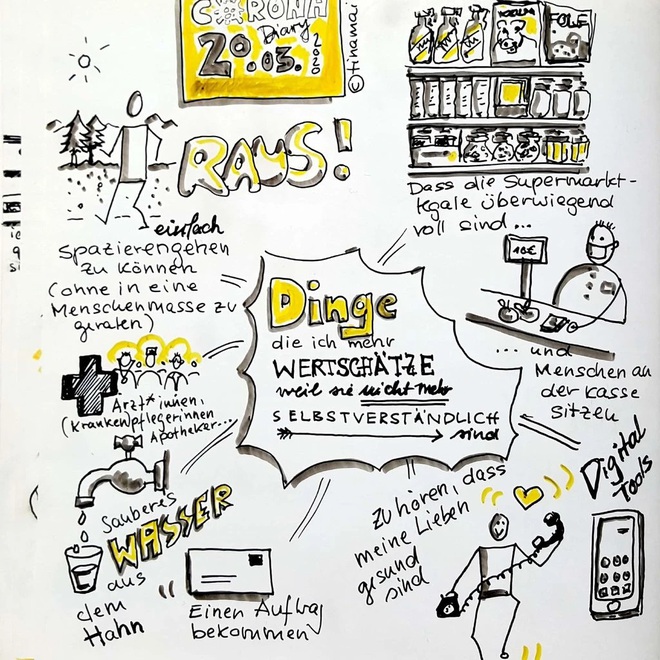 CORONA
Diary
20.03.
2020
©tinamai
RAUS!
einfach
spazierengehen
zu können
(ohne in eine
Menschenmasse zu
geraten)
Dass die Supermarkt-
regale überwiegend
voll sind...
10€
... und
Menschen an
der Kasse
sitzen
Dinge
die ich mehr
WERTSCHÄTZE
weil sie nicht mehr
SELBSTVERSTÄNDLICH
sind
Ärzt*innen,
(Kranken)pflegerinnen
Apotheker...
Sauberes
WASSER
aus
dem
Hahn
Einen Auftrag
bekommen
zu hören, dass
meine Lieben
gesund
sind
Digital
Tools